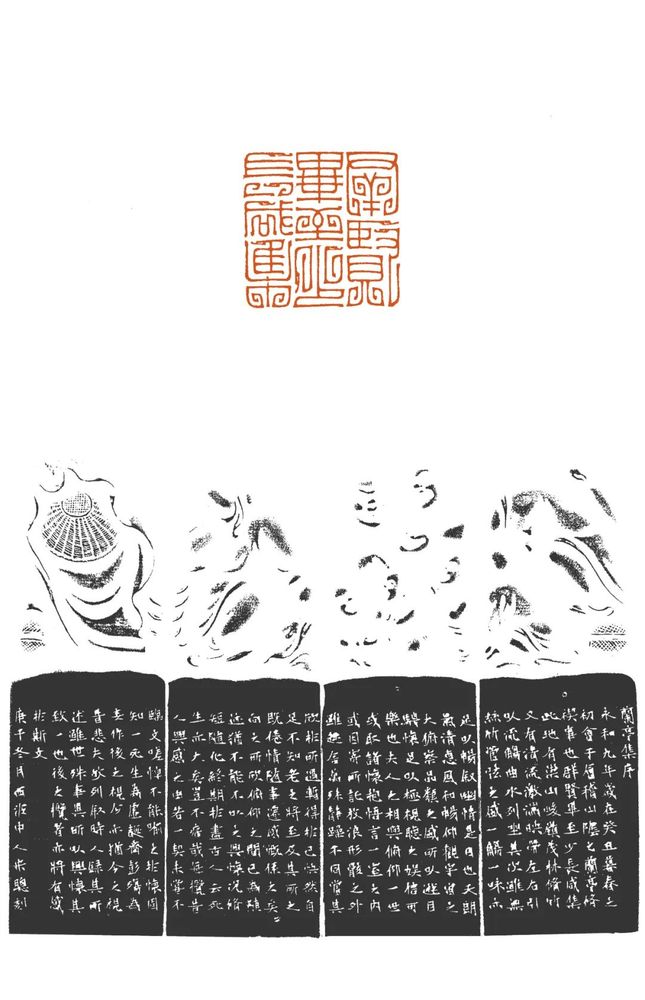 群賢
畢至少
長咸集
蘭亭集序
永和九年歲在癸丑暮春之
初會于會稽山陰之蘭亭修
禊事也群賢畢至少長咸集
此地有崇山峻嶺茂林修竹
又有清流激湍映帶左右引
以流觴曲水列坐其次雖無
絲竹管弦之盛一觴一咏亦
足以暢叙幽情是日也天朗
氣清惠風和暢仰觀宇宙之
大俯察品類之盛所以遊目
騁懷足以極視聽之娛信可
樂也夫人之相與俯仰一世
或取諸懷抱悟言一室之内
或因寄所託放浪形骸之外
雖趣舍萬殊靜躁不同當其
欣於所遇暫得於己怏然自
足不知老之將至及其所之
既倦情隨事遷感慨係之矣
向之所欣俯仰之間已為陳
迹猶不能不以之興懷況脩
短隨化終期於盡古人云死
生亦大矣豈不痛哉每攬昔
人興感之由若一契未嘗不
臨文嗟悼不能喻之於懷固
知一死生為虛誕齊彭殤為
妄作後之視今亦猶今之視
昔悲夫故列叙時人録其所
述雖世殊事異所以興懷其
致一也後之覽者亦將有感
於斯文
庚午冬月西泠中人朱聰刻